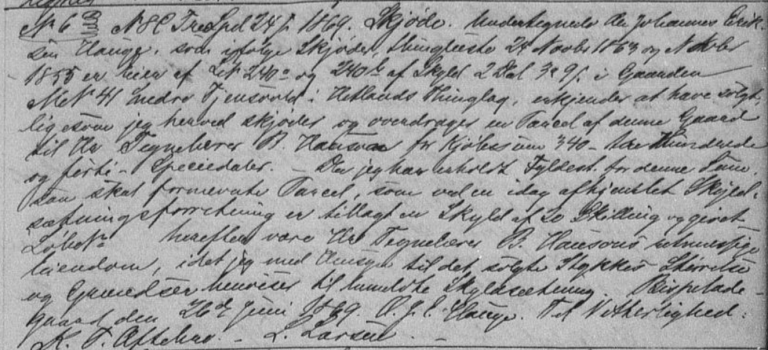 No 6 No 8C Tre Spd 24 ſ. 1869. Skjøde. Undertegnede Ole Johannes Erik-
sen Hauge, som ifølge Skjøder, thinglæste 24 Novbr 1863 og
1855 er eier af L.N. 240a og 240b af Skyld 2 Dal 3 9 ſ. i Gaarden
M.N. 41 Indre Tjensvold i Hetlands Thinglag, erkjender at have solgt,
ligesom jeg herved skjøder og overdrager en Parcel af denne Gaard
til Hr Tegnelærer B. Hansson for Kjøbesum 340 - tre Hundrede
og førti - Speciedaler. Da jeg har erholdt Fyldest for denne Sum,
saa skal formeldte Parcel, som ved en idag afhjemlet Skyld-
sætningsforretning er tillagt en Skyld af 20 Skilling og givet
Løbeno herefter være Hr Tegnelærer B. Hanssons retmæssige
Eiendom, idet jeg med Hensyn til det solgte Stykkes Størrelse
og Grændser henviser til meldte Skyldsætning. Bispelade-
gaard den 26de Juni 1869. O. J. E. Hauge. Til Vitterlighed:
L. Larsen.